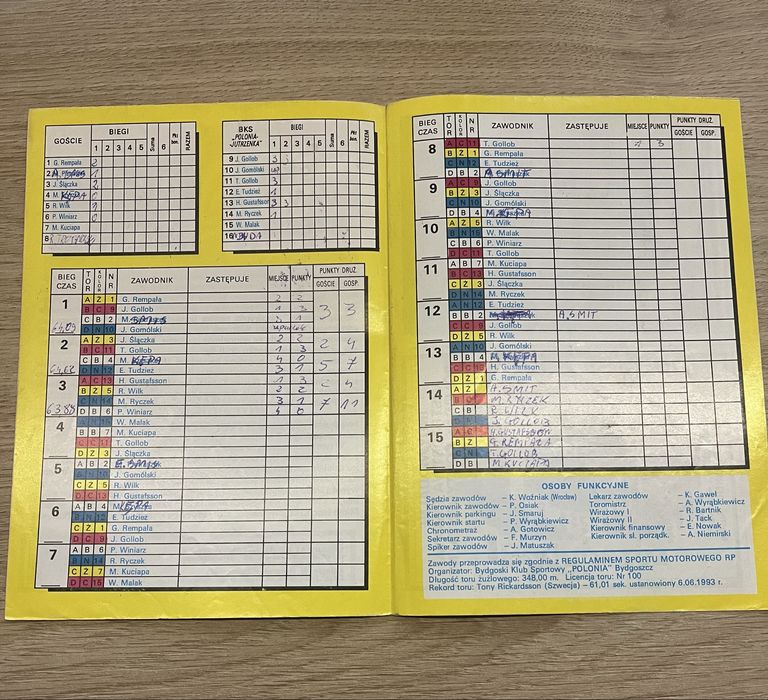 GOŚCIE BIEGI
1 2 3 4 5 Suma 6 Pkt bon. RAZEM
1 G. Rempała 2
2
3 J. Ślączka 2
4 M. KĘPA 0
5 R. Wilk 1
6 P. Winiarz 0
7 M. Kuciapa
8
BKS "POLONIA-JUTRZENKA" BIEGI
1 2 3 4 5 Suma 6 Pkt bon. RAZEM
9 J. Gollob 3
10 J. Gomólski w
11 T. Gollob 3
12 E. Tudzież 1
13 H. Gustafsson 3 3
14 M. Ryczek 1
15 W. Malak
16
BIEG CZAS TOR KOLOR NR ZAWODNIK ZASTĘPUJE MIEJSCE PUNKTY PUNKTY DRUŻ. GOŚCIE GOSP.
1 A Ż 1 G. Rempała 2 2
B C 9 J. Gollob 1 3 3 3
C B 2 3 1
64,09 D N 10 J. Gomólski upadek
2 A Ż 3 J. Ślączka 2 2
B C 11 T. Gollob 1 3 2 4
C B 4 M. KĘPA 4 0
64,62 D N 12 E. Tudzież 3 1 5 7
3 A C 13 H. Gustafsson 1 3
B Ż 5 R. Wilk 2 2 2 4
C N 14 M. Ryczek 3 1
63,88 D B 6 P. Winiarz 4 0 7 11
4 A N 15 W. Malak
B B 7 M. Kuciapa
C C 11 T. Gollob
D Ż 3 J. Ślączka
5 A B 2 SMIT
B N 10 J. Gomólski
C Ż 5 R. Wilk
D C 13 H. Gustafsson
6 A B 4 KĘPA
B N 12 E. Tudzież
C Ż 1 G. Rempała
D C 9 J. Gollob
7 A B 6 P. Winiarz
B N 14 R. Ryczek
C Ż 7 M. Kuciapa
D C 15 W. Malak
BIEG CZAS TOR KOLOR NR ZAWODNIK ZASTĘPUJE MIEJSCE PUNKTY PUNKTY DRUŻ. GOŚCIE GOSP.
8 A C 11 T. Gollob 1 3
B Ż 1 G. Rempała
C N 12 E. Tudzież
D B 2 A. SMIT
9 A C 9 J. Gollob
B Ż 3 J. Ślączka
C N 10 J. Gomólski
D B 4 M. KĘPA
10 A Ż 5 R. Wilk
B N 15 W. Malak
C B 6 P. Winiarz
D C 11 T. Gollob
11 A B 7 M. Kuciapa
B C 13 H. Gustafsson
C Ż 3 J. Ślączka
D N 14 M. Ryczek
12 A N 12 E. Tudzież
B B 2 A. SMIT
C C 9 J. Gollob
D Ż 5 R. Wilk
13 A N 10 J. Gomólski
B B 4 M. KĘPA
C C 13 H. Gustafsson
D Ż 1 G. Rempała
14 A Ż A. SMIT
B C M. RYCZEK
C B R. WILK
D N J. GOLLOB
15 A C H. GUSTAFSSON
B Ż G. REMPAŁA
C N T. GOLLOB
D B M. KUCIAPA
OSOBY FUNKCYJNE
Sędzia zawodów – K. Woźniak (Wrocław) Lekarz zawodów – K. Gaweł
Kierownik zawodów – P. Osiak Toromistrz – A. Wyrąbkiewicz
Kierownik parkingu – J. Smaruj Wirażowy I – R. Bartnik
Kierownik startu – P. Wyrąbkiewicz Wirażowy II – J. Tack
Chronometraż – A. Gotowicz Kierownik finansowy – E. Nowak
Sekretarz zawodów – F. Murzyn Kierownik sł. porządk. – A. Niemirski
Spiker zawodów – J. Matuszak
Zawody przeprowadza się zgodnie z REGULAMINEM SPORTU MOTOROWEGO RP
Organizator: Bydgoski Klub Sportowy „POLONIA" Bydgoszcz
Długość toru żużlowego: 348,00 m. Licencja toru: Nr 100
Rekord toru: Tony Rickardsson (Szwecja) – 61,01 sek. ustanowiony 6.06.1993 r.